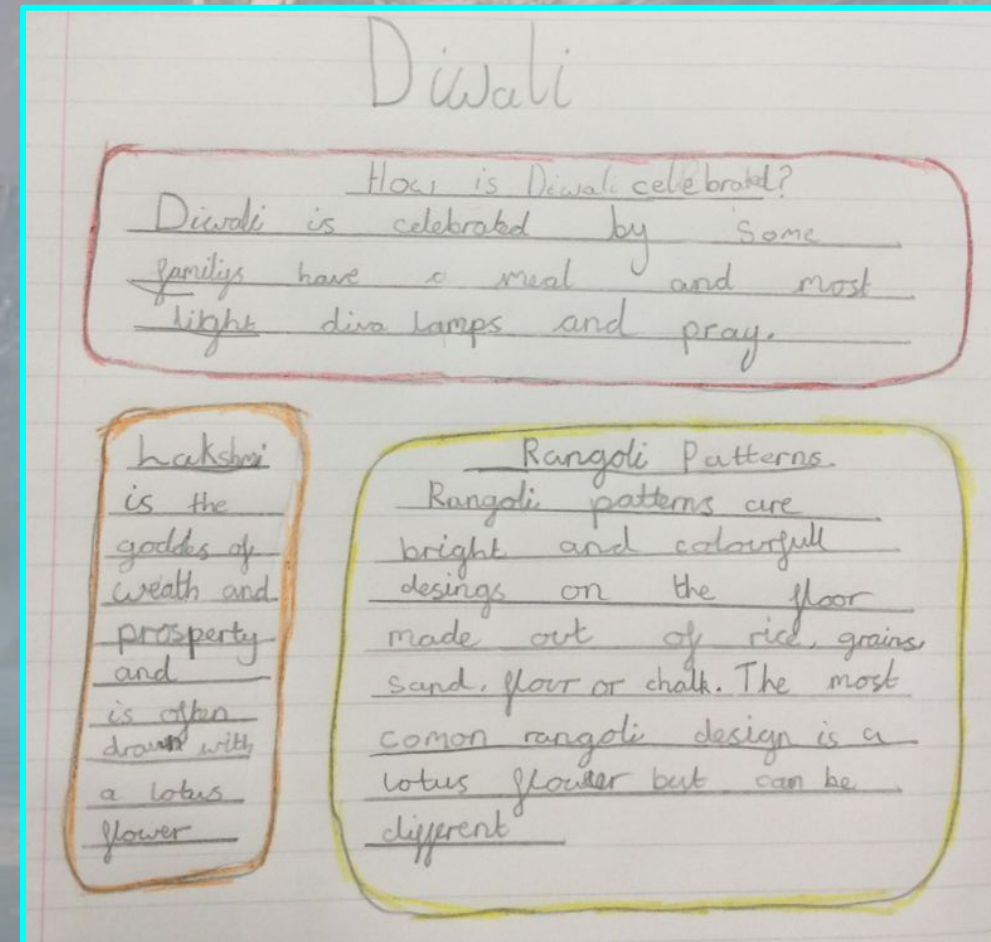 Diwali
How is Diwali celebrated?
Diwali is celebrated by some
familys have a meal and most
light diva lamps and pray.
Lakshmi
is the
goddes of
weath and
prosperty
and
is often
drawn with
a lotus
flower
Rangoli Patterns.
Rangoli patterns are
bright and colourfull
desings on the floor
made out of rice, grains,
sand, flour or chalk. The most
comon rangoli design is a
lotus flower but can be
different